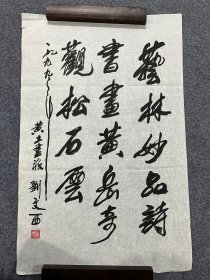 藝林妙品詩
書畫黃岳奇
觀松石雲
一九九九
黃土畫派 劉文西